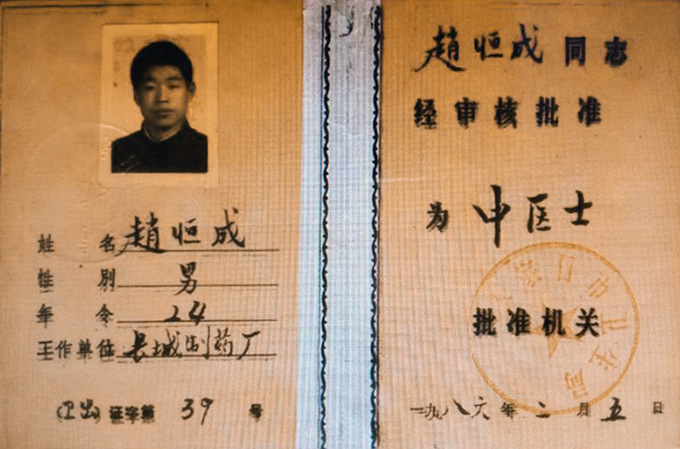 姓 名 趙恒成
性 别 男
年 令 24
工作单位 长城制药厂
证字第 39 号
趙恒成 同志
经审核批准
为 中医士
市卫生局
批准机关
一九八六年二月五日